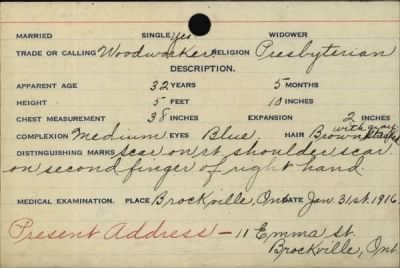 MARRIED SINGLE Yes WIDOWER
TRADE OR CALLING Woodworker RELIGION Presbyterian
DESCRIPTION.
APPARENT AGE 32 YEARS 5 MONTHS
HEIGHT 5 FEET 10 INCHES
CHEST MEASUREMENT 38 INCHES EXPANSION 2 INCHES
COMPLEXION Medium EYES Blue. HAIR Brown with gray
DISTINGUISHING MARKS scar on rt shoulder scar
on second finger of right hand.
MEDICAL EXAMINATION. PLACE Brockville, Ont DATE Jan. 31st. 1916.
Present Address - 11 Emma st.
Brockville, Ont